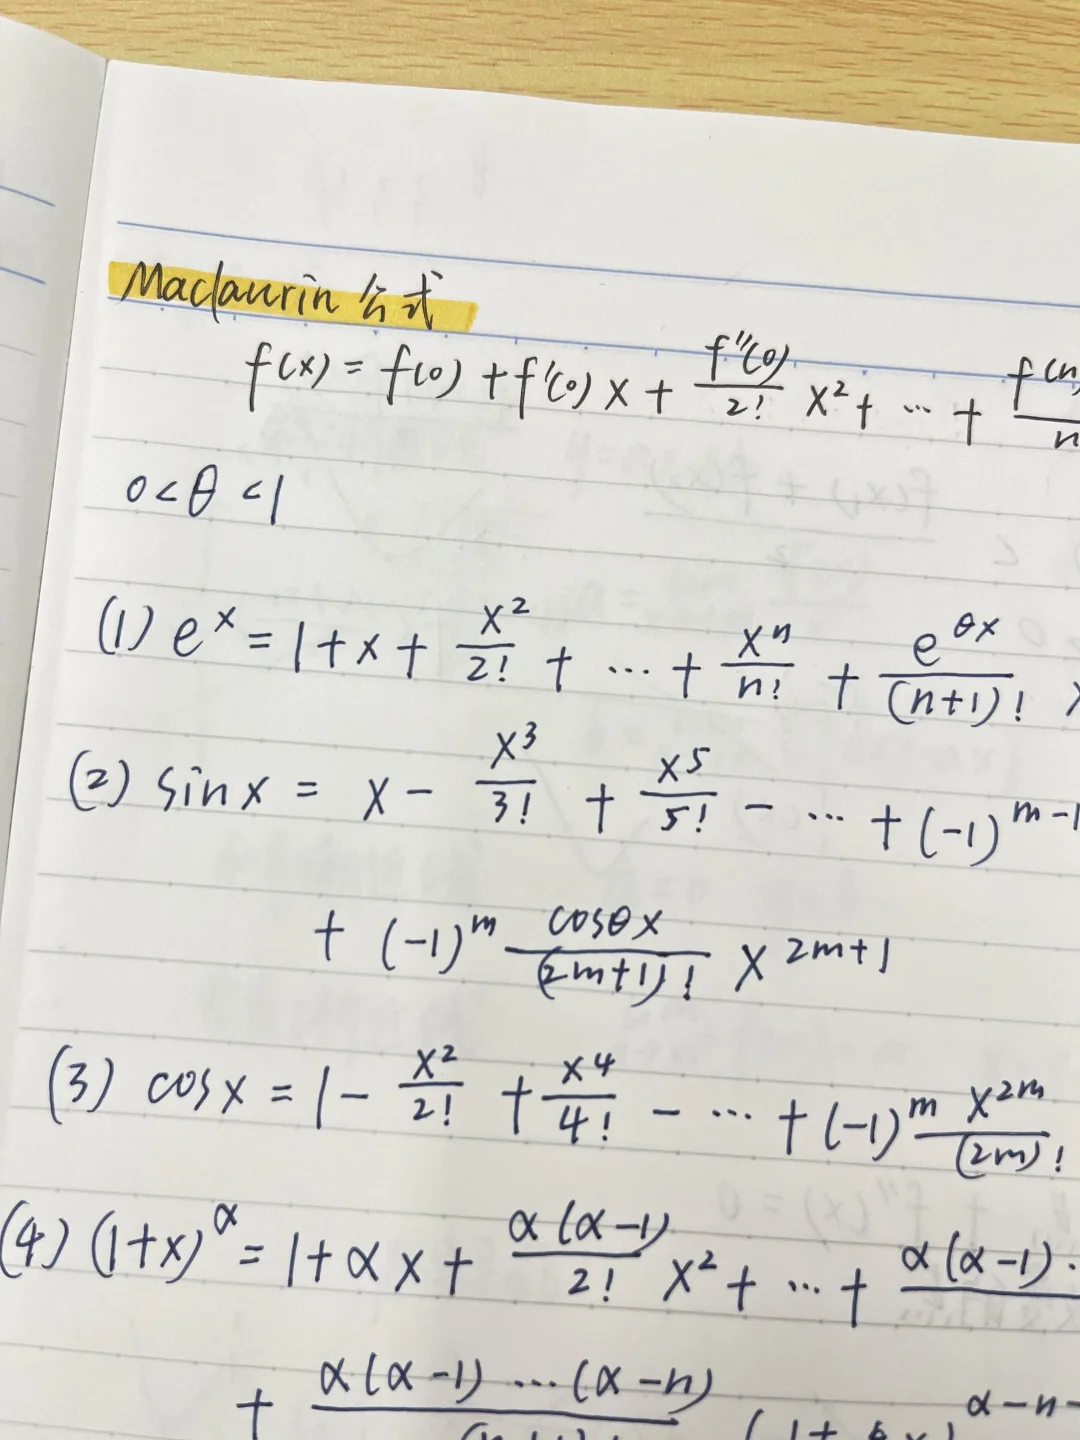 Maclaurin 公式
f(x) = f(0) + f'(0) x + f''(0)/2! x² + … + f⁽ⁿ/n
0 < θ < 1
(1) eˣ = 1 + x + x²/2! + … + xⁿ/n! + e^θx/(n+1)! x
(2) sin x = x - x³/3! + x⁵/5! - … + (-1)^m-1
+ (-1)^m cosθx/(2m+1)! x^2m+1
(3) cos x = 1 - x²/2! + x⁴/4! - … + (-1)^m x^2m/(2m)!
(4) (1+x)^α = 1 + αx + α(α-1)/2! x² + … + α(α-1)·
+ α(α-1)…(α-n)